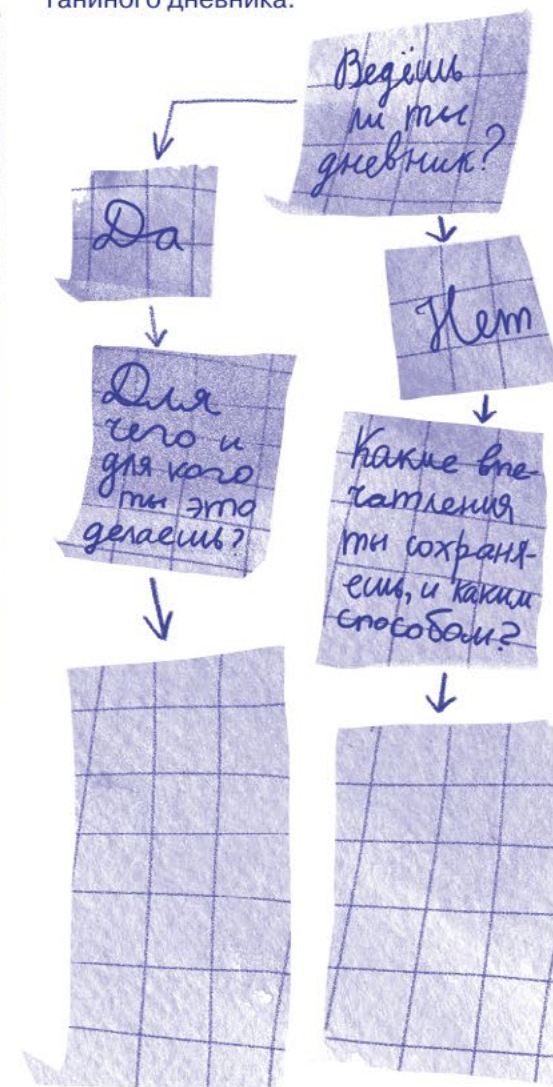 таниного дневника.
Ведёшь
ли ты
дневник?
Да
Нет
Для
чего и
для кого
ты это
делаешь?
Какие впе-
чатления
ты сохраня-
ешь, и каким
способом?